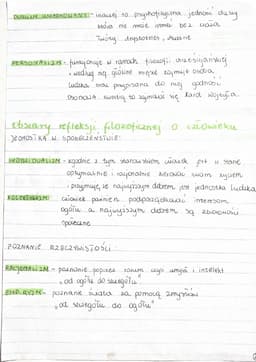 DUALIZM UMIARKOWANY - człowiek to psychofizyczna jedność duszy
ciała nie może istnieć bez ciała
Twórcy: Arystoteles,
PERSONALIZM - funkcjonuje w ramach filozofii chrześcijańskiej
• według niej główne miejsce zajmuje osoba
ludzka oraz przypisana do niej godność
OSOBĄ, która tą zajmuje się Karol Wojtyła.
obszary refleksji filozoficznej o człowieku
JEDNOSTKA W SPOŁECZEŃSTWIE:
INDYWIDUALIZM - zgodnie z tym stanowiskiem człowiek jest w stanie
optymalnie i racjonalnie kierować swoim życiem
• przyjmuje, że najwyższym dobrem jest jednostka ludzka
KOLEKTYWIZM - człowiek powinien podporządkować interesom
ogółu a najwyższym dobrem są zbiorowości
społeczne
POZNANIE RZECZYWISTOŚCI:
RACJONALIZM - poznanie poprzez rozum czyli umysł i intelekt
"od ogółu do szczegółu"
EMPIRYZM - poznanie świata za pomocą zmysłów
"od szczegółu do ogółu"